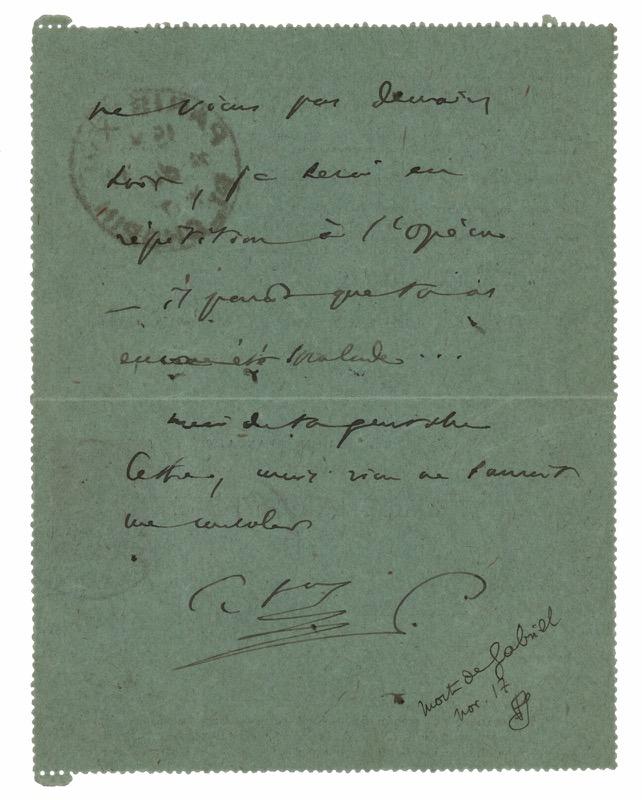 ne viens pas demain
soir, je serai en
répétition à l'Opéra
— il paraît que tu as
encore été malade...
merci de ta gentille
lettre, mais rien ne saurait
me consoler
mort de Gabriel
nov. 17